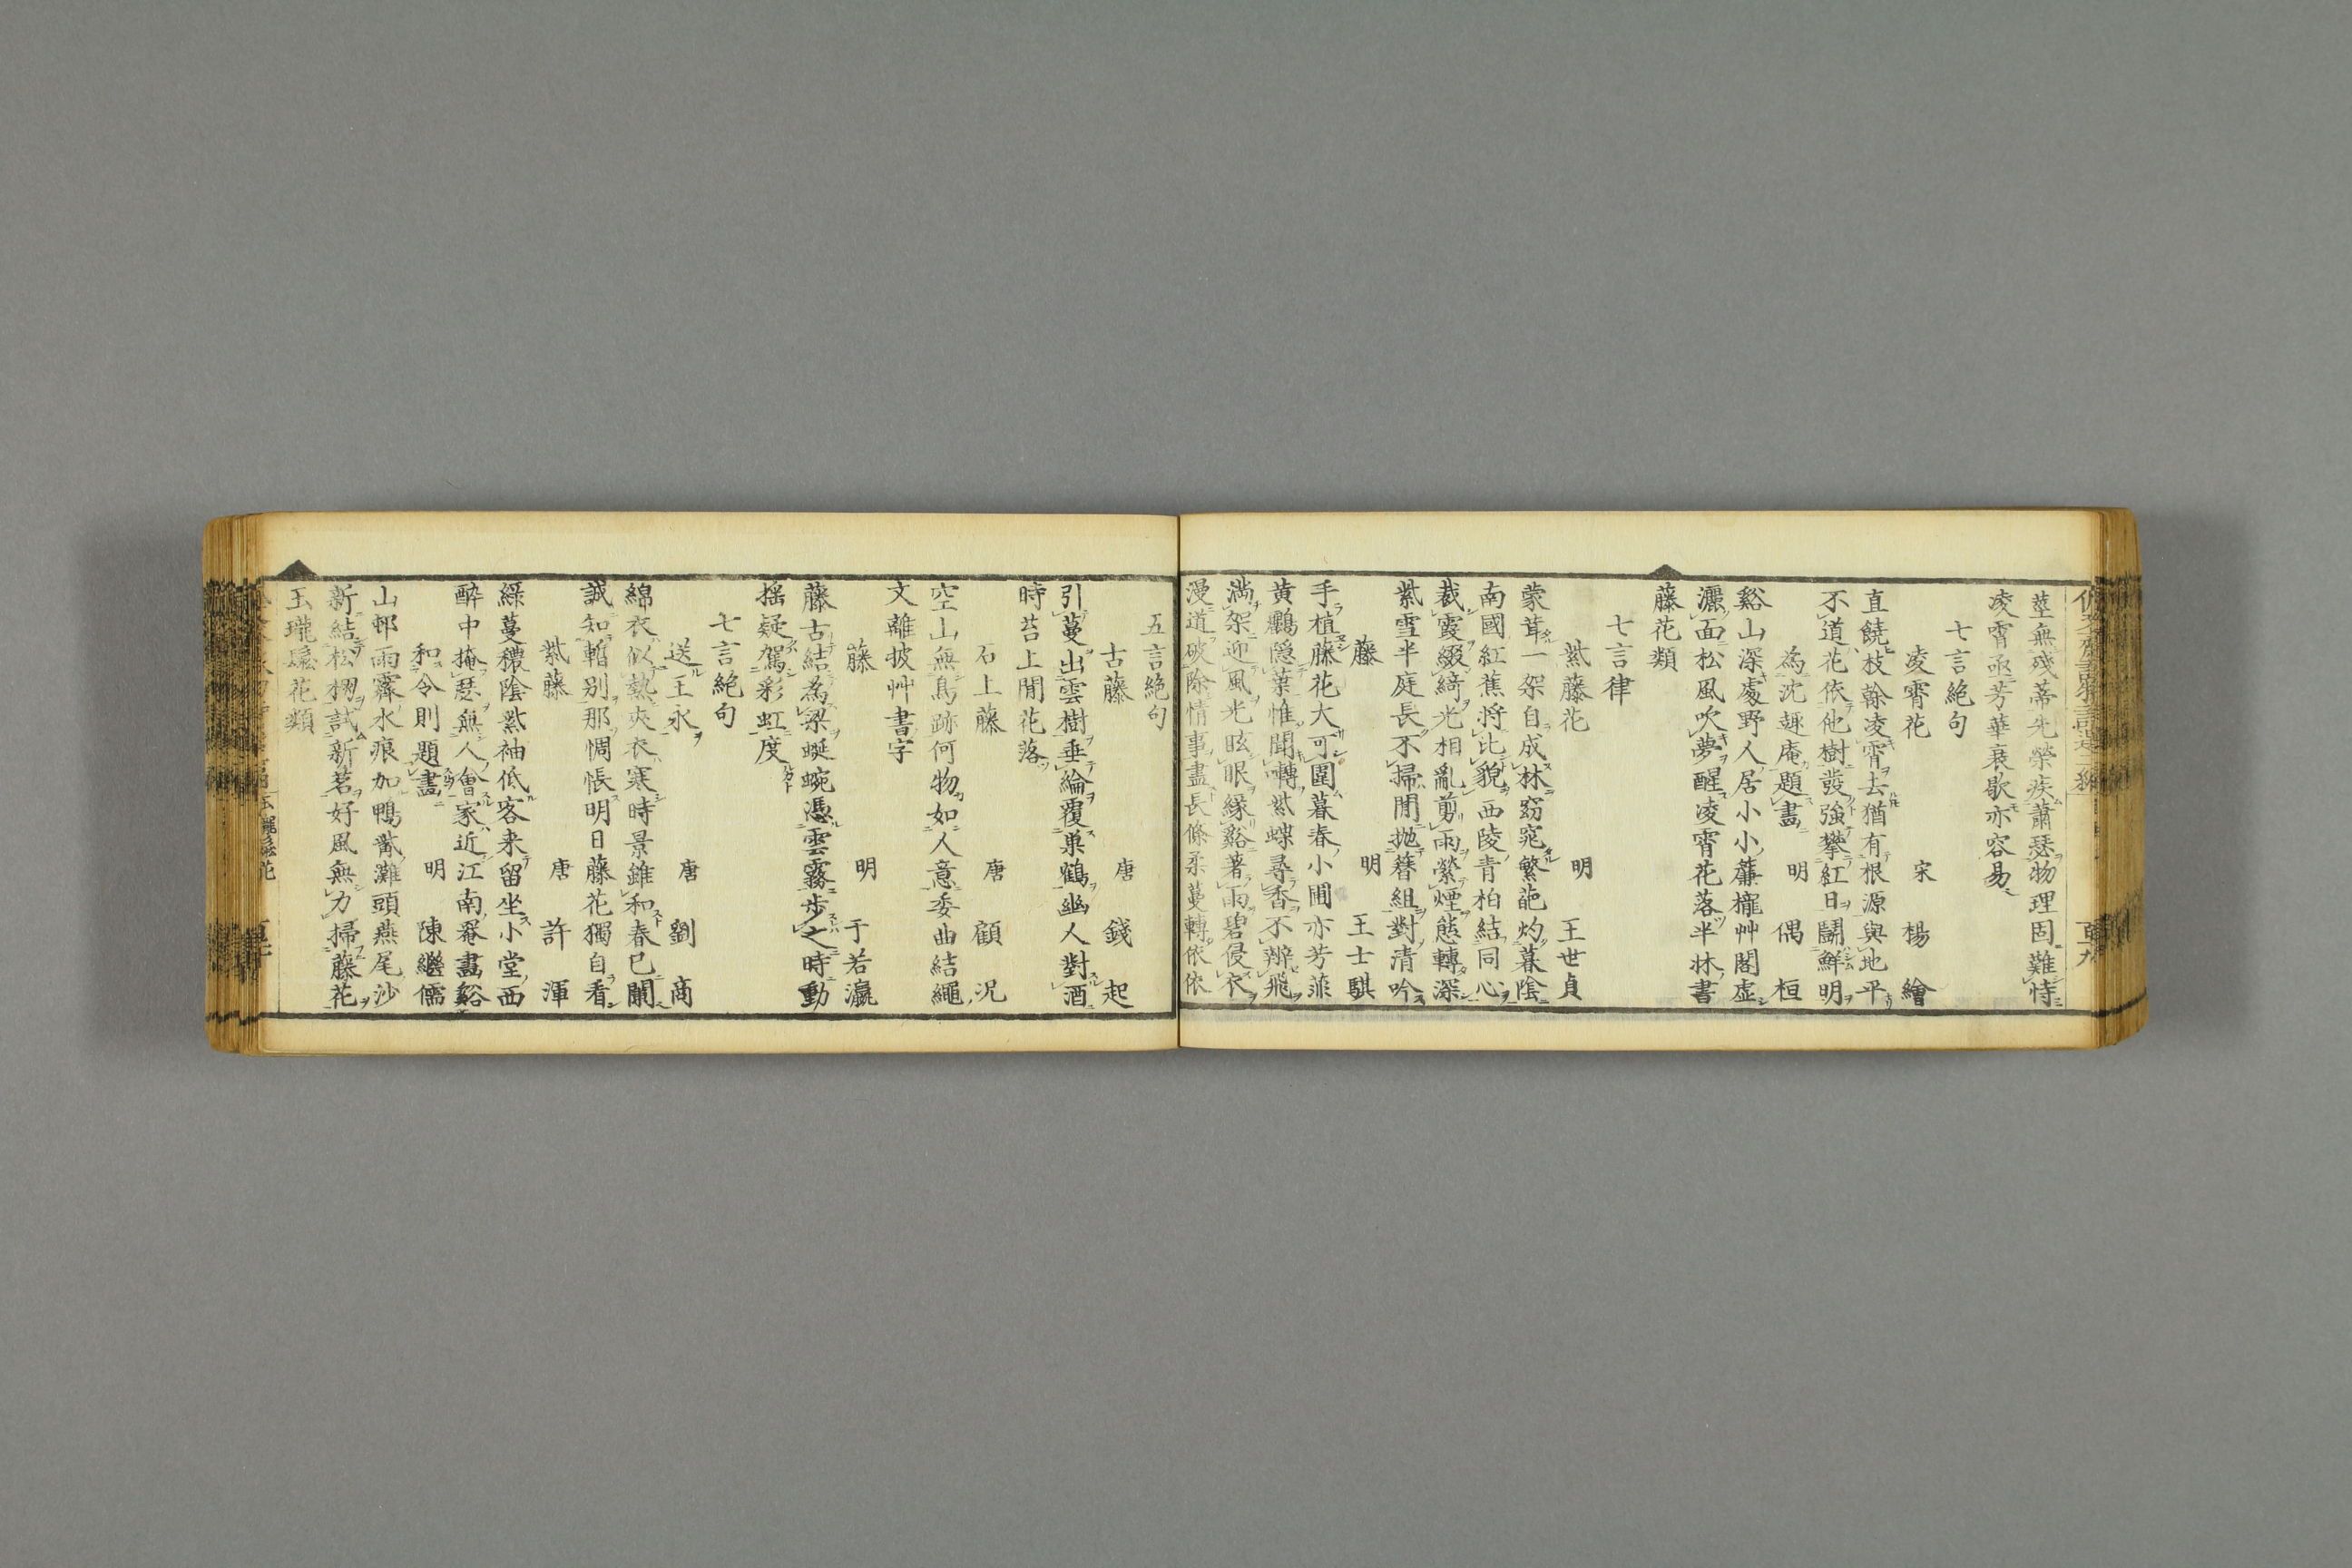 莖無殘蒂先榮疾蕭瑟物理固難恃
凌霄亟芳華衰歇亦容易
七言絶句
凌霄花 宋 楊繪
直饒枝榦凌霄去猶有根源與地平
不道花依他樹發強攀紅日鬪鮮明
為沈趣庵題畫 明 偶桓
谿山深處野人居小小簾櫳艸閣虚
灑面松風吹夢醒凌霄花落半牀書
藤花類
七言律
紫藤花 明 王世貞
蒙茸一架自成林窈窕繁葩灼暮陰
南國紅蕉将比貌西陵青柏結同心
裁霞綴綺光相亂剪雨縈煙態轉深
紫雪半庭長不掃閒抛簪組對清吟
藤 明 王士騏
手植藤花大可圍暮春小圃亦芳菲
黄鸝隱葉惟聞囀紫蝶尋香不辨飛
満架迎風光眩眼緑谿著雨碧侵衣
漫道破除情事盡長條柔蔓轉依依
五言絶句
古藤 唐 錢起
引蔓出雲樹垂綸覆巣鶴幽人對酒
時苔上閒花落
石上藤 唐 顧况
空山無鳥跡何物如人意委曲結繩
文離披艸書字
藤 明 于若瀛
藤古結為梁蜒蜿憑雲霧歩之時動
揺疑駕彩虹度
七言絶句
送王永 唐 劉商
綿衣似熱夾衣寒時景雖和春已闌
誠知暫别那惆悵明日藤花獨自看
紫藤 唐 許渾
緑蔓穠陰紫袖低客来留坐小堂西
醉中掩瑟無人會家近江南罨畫谿
和令則題畫 明 陳繼儒
山邨雨霽水痕加鴨觜灘頭燕尾沙
新結松棚試新茗好風無力掃藤花
玉瓏鬆花類